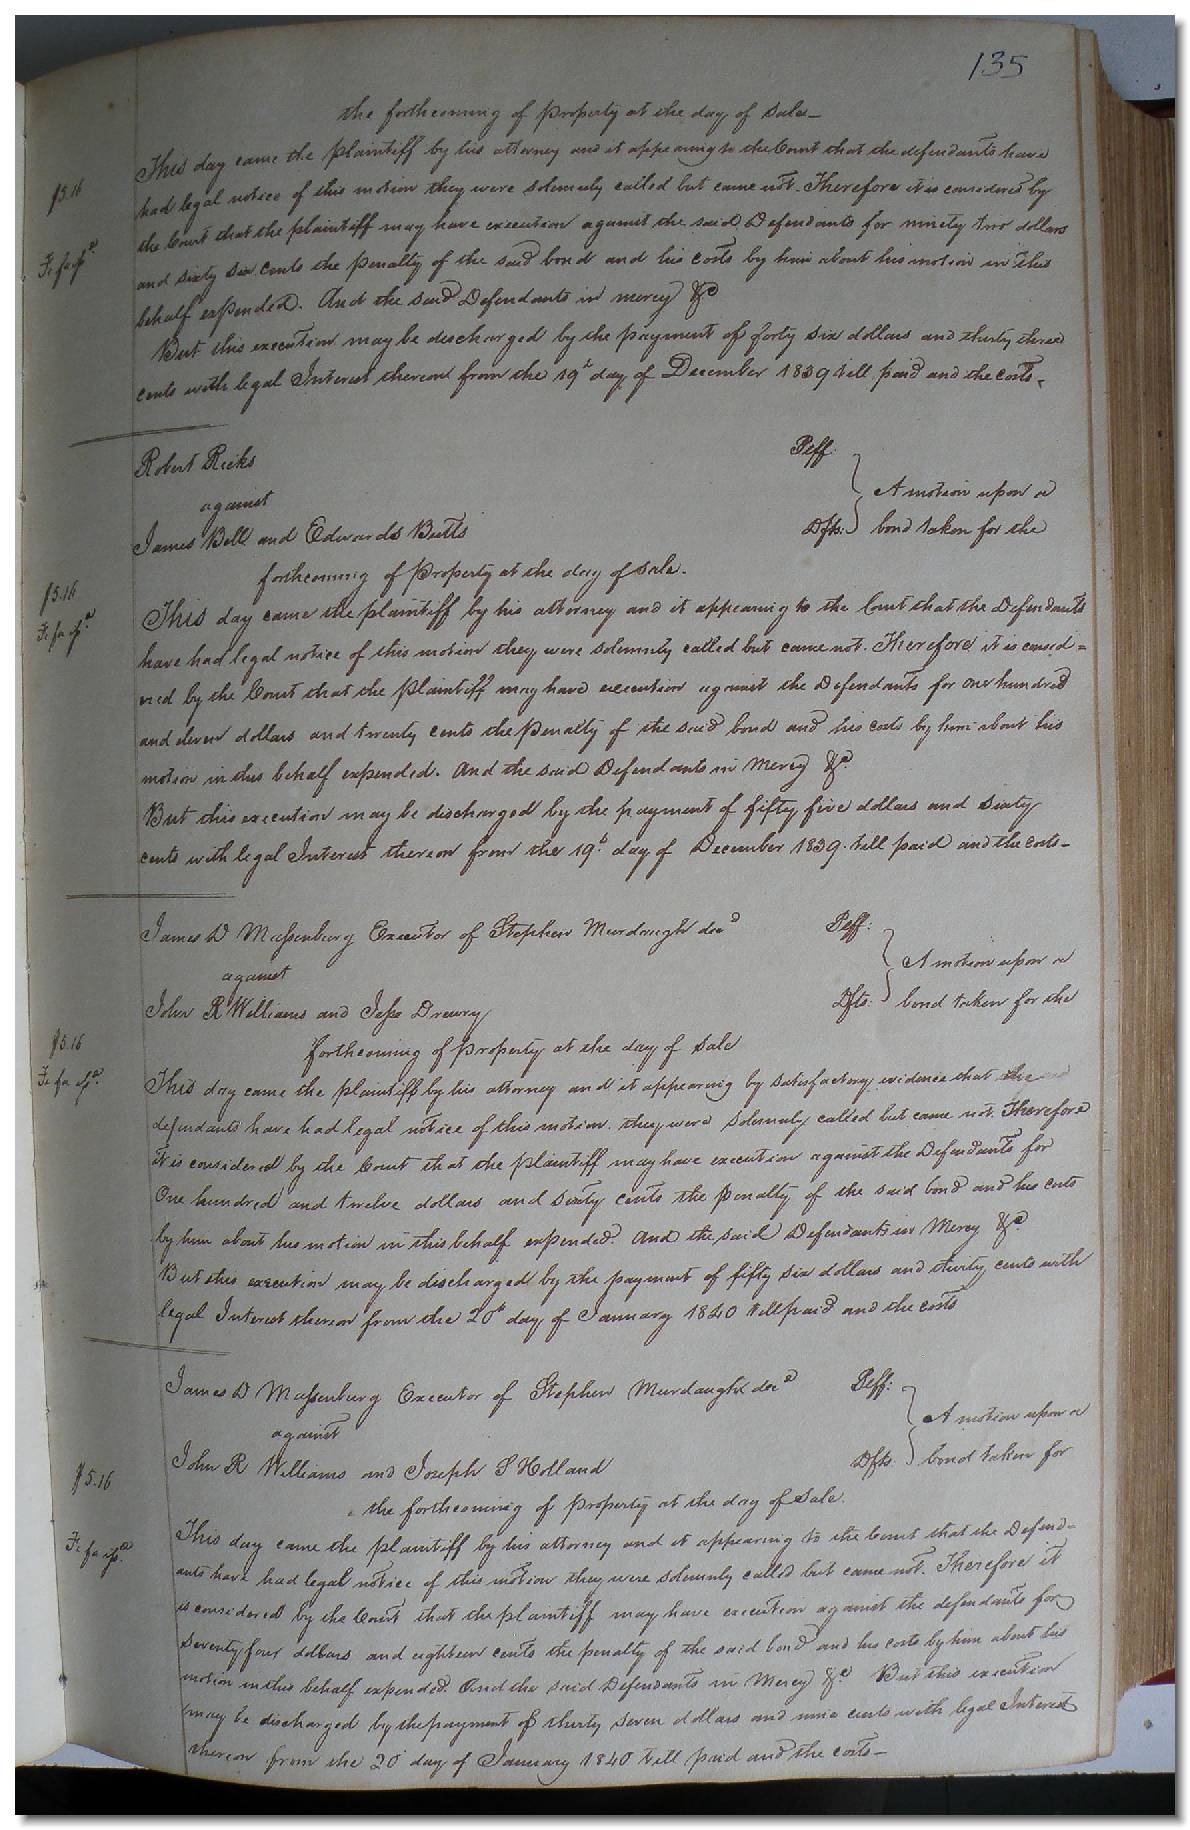 135
the forthcoming of property at the day of sale_
This day came the plaintiff by his attorney and it appearing to the Court that the defendants have
$5.16
had legal notice of this motion they were solemnly called but came not. Therefore it is considered by
the Court that the plaintiff may have execution against the said Defendants for ninety two dollars
Fi fa isd.
and sixty six cents the penalty of the said bond and his costs by him about his motion in this
behalf expended. And the said Defendants in mercy &c
But this execution may be discharged by the payment of forty six dollars and thirty three
cents with legal Interest thereon from the 19th day of December 1839 till paid and the costs.
Robert Ricks Plff.
against A motion upon a
James Bell and Edwards Butts Dfts. bond taken for the
forthcoming of property at the day of sale.
$5.16
This day came the plaintiff by his attorney and it appearing to the Court that the Defendants
Fi fa isd.
have had legal notice of this motion they were solemnly called but came not. Therefore it is consid=
ered by the Court that the plaintiff may have execution against the Defendants for one hundred
and eleven dollars and twenty cents the penalty of the said bond and his costs by him about his
motion in this behalf expended. And the said Defendants in Mercy &c.
But this execution may be discharged by the payment of fifty five dollars and sixty
cents with legal Interest thereon from the 19th day of December 1839. till paid and the costs_
James D Massenburg Executor of Stephen Murdaugh decd Plff:
against A motion upon a
John R Williams and Jesse Drewry Dfts: bond taken for the
forthcoming of property at the day of sale
$5.16
This day came the plaintiff by his attorney and it appearing by satisfactory evidence that the
Fi fa isd.
defendants have had legal notice of this motion. they were solemnly called but came not. Therefore
it is considered by the Court that the plaintiff may have execution against the Defendants for
One hundred and twelve dollars and sixty cents the penalty of the said bond and his costs
by him about his motion in this behalf expended. And the said Defendants in Mercy &c.
But this execution may be discharged by the payment of fifty six dollars and thirty cents with
legal Interest thereon from the 20th day of January 1840 till paid and the costs
James D Massenburg Executor of Stephen Murdaugh decd Plff:
against A motion upon a
John R Williams and Joseph S Holland Dfts. bond taken for
$5.16
the forthcoming of property at the day of sale.
This day came the plaintiff by his attorney and it appearing to the Court that the Defend-
Fi fa isd.
ants have had legal notice of this motion they were solemnly called but came not. Therefore it
is considered by the Court that the plaintiff may have execution against the defendants for
Seventy four dollars and eighteen cents the penalty of the said bond and his costs by him about his
motion in this behalf expended. And the said Defendants in Mercy &c. But this execution
may be discharged by the payment of thirty seven dollars and nine cents with legal Interest
thereon from the 20 day of January 1840 till paid and the costs_